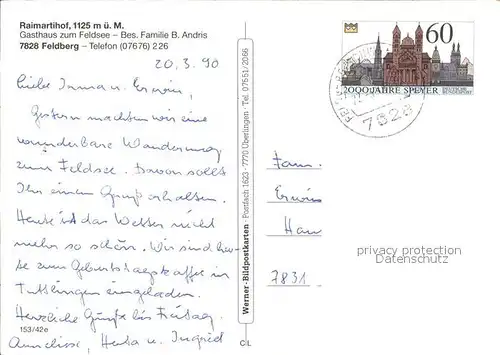 Raimartihof, 1125 m ü. M.
Gasthaus zum Feldsee – Bes. Familie B. Andris
7828 Feldberg – Telefon (07676) 226
20.3.90
Liebe Irma u. Erwin,
Gestern machten wir eine
wunderbare Wanderung
zum Feldsee. Davon sollt
Ihr einen Gruß erhalten.
Heute ist das Wetter nicht
mehr so schön. Wir sind heu-
te zum Geburtstagskaffee in
Tuttlingen eingeladen.
Herzliche Grüße bis Freitag
Anneliese, Herta u. Ingrid
153/42e
CL
Werner-Bildpostkarten · Postfach 1623 · 7770 Überlingen · Tel. 07551/2066
60
2000 JAHRE SPEYER
DEUTSCHE BUNDESPOST
7828
Fam.
Erwin
Hau
7831
privacy protection
Datenschutz